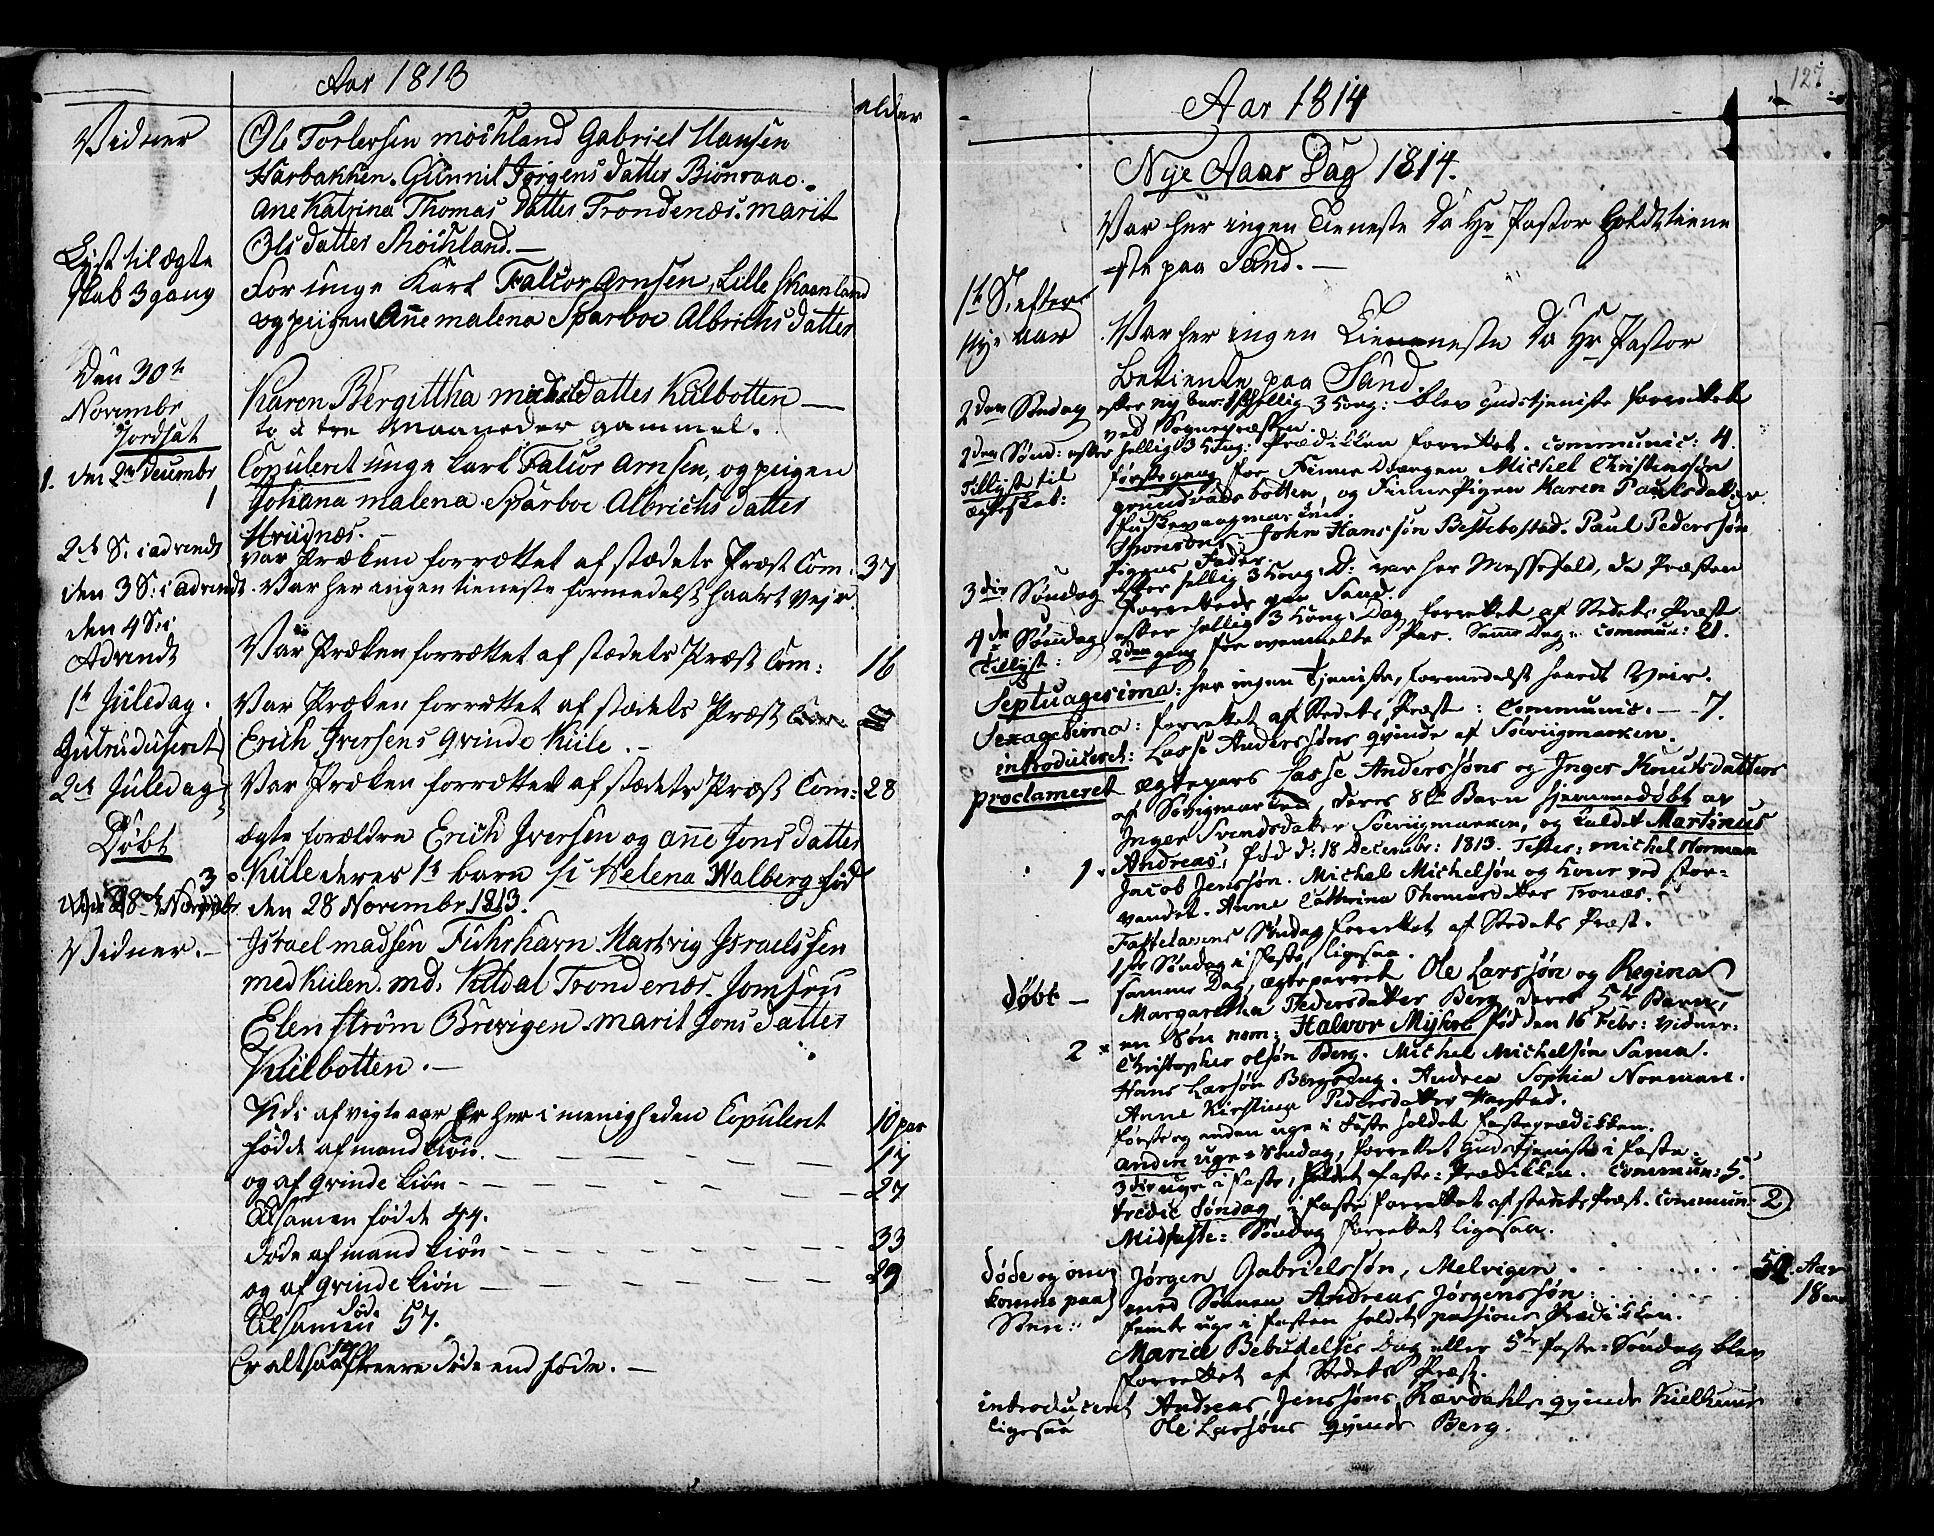 Aar 1813
alder
Vidner
Ole Torlersen møchland Gabriel Hansen
Harbakken. Gunnil Jørgens datter Bionraae.
ane Katrina Thomas datter Trondenæs. marit
Ols datter Møchland. —
Lyst til ægte
skab 3 gang
for unge Karl Falcor Arnsen, Lille skaanland
og piigen Ane malena Sparboe Albrichs datter
Den 30te
Novembr
jordsat
Karen Bergittha michels datter Kulbotten —
to à tre Maaneder gammel.
1. den 2den Decembr
1
Copulerit unge karl Falcor Arnsen, og piigen
Johana malena Sparboe Albrichs datter
2den S. i advendt
var Præken forrættet af stædets Præst Com: 37
den 3 S: i advendt. Var her ingen tieneste formedelst haart Vejr.
den 4 S: i
Advendt
Var Præken forrættet af stædets Præst Com: 16
1te Juledag.
Var Præken forrættet af stædets Præst
Introduserit
Erich Iversens qvinde Kiile. —
2den Juledag
Var Præken forrættet af stædets Præst Com: 28
Døbt
ægte forældre Erich Iversen og ane Jons datter
3
Kiille deres 1te barn Helena Walberg fød
den 28 Novembr 1813.
Vidner. —
Israel madsen Fuhrharn. Hartvig Israelssen
Kildal Trondenæs. Jomfru
Elen strøm Brevigen. marit Jons datter
Kulbotten. —
af vigte aar Er her i menigheden Copulerit 10 par
fødde af mand kiøn. — — — — 17
og af qvinde kiøn — — — — — 27
Alsamen fødde 44.
døde af mand kiøn — — — — — 33
og af qvinde kiøn — — — — 29
Alsamen døde 57.
Er altsaa fleere døde end fødde. —
127
Aar 1814
Nye Aars Dag 1814.
Var her ingen Tieneste da Hr Pastor holdt tiene
=ste paa Sand. —
1te S. efter
Nye Aar
Var her ingen Tieneste da Hr Pastor
Betiente paa Sand
2den Søndag efter hellig 3 Kong: blev Gudstjeniste forrettet
ved Sognepræsten.
2den Sønd: efter hellig 3 Kong: Prædikken forrettet. Communic: 4.
Tillyst til
ægteskab:
første gang for Finne Drængen Michel Christensøn
grundvadsbotten, og Finne Pigen Karen Paulsdatter
John Hanssøn Bessebostad. Paul Pederssøn
Pigens Fader
3die Søndag efter hellig 3 Kong: D: var her Messefald, da Præsten
forrettede paa Sand.
4de Sønndag efter hellig 3 Kong: Dag forrettet af Stedets Præst
Tillyst:
2den gang for ovenmelte Par. Same Dag: Commun: 21.
Septuagesima: her ingen Tjeniste, formedelst haardt Veir.
Sexagesima: forrettet af Stedets Præst: Communic. — 7.
introduceret: Lasse Anderssøns qvinde af Sørvigmarken.
proclameret Ægtepars Lasse Anderssøns og Inger Knudsdatters
af Sørvigmarken, deres 8te Barn hjemmedøbt av
Inger Svendsdatter Sørvigmarken, og kaldet Martinus
1. Andreas, fød d: 18 Decembr: 1813. Test: Michel Norman
Jacob Jenssøn. Michel Michelsøn og Kone ved stor=
vandet. Anne Cathrina Thomasdatter Tronæs.
Fastelavens Søndag forrettet af Stedets Præst.
1ste Søndag i Faste, ligesaa.
døbt —
samme Dag, ægteparret Ole Larssøn og Regina
Margaretha Pedersdatter Berg deres 5te Barn,
en Søn nom: Halvor Myhre fød den 16 Febr: vidner:
2
Christopher olsøn Berg. Michel Michelsøn Sama.
Hans Larsøn Bergseng. Andrea Sophia Norman.
Anne Kirstina Pedersdatter Harstad.
første og anden uge i Faste holdet Fasteprædikken.
anden uge Søndag, forrettet Gudstjeniste i Faste.
3die uge i Faste, holdet Faste=Prædikken. Commun: 5.
tredie Søndag i Faste forrettet af stedets Præst. Commun: 2
Midfaste=Søndag forrettet ligesaa.
døde og om
komne paa
Søen:
Jørgen Gabrielssøn, Melvigen . . . . 50 Aar
med Sønnen Andreas Jørgenssøn . . . . 18 aar
femte uge i Fasten holdet passions Prædikken.
Mariæ Bebudelses Dag eller 5te Faste=Søndag blev
forrettet af Stedets Præst.
introduceret Andreas Jenssøns Kævdahls qvinde Kielhuus
ligesaa Ole Larsøns qvinde Berg.